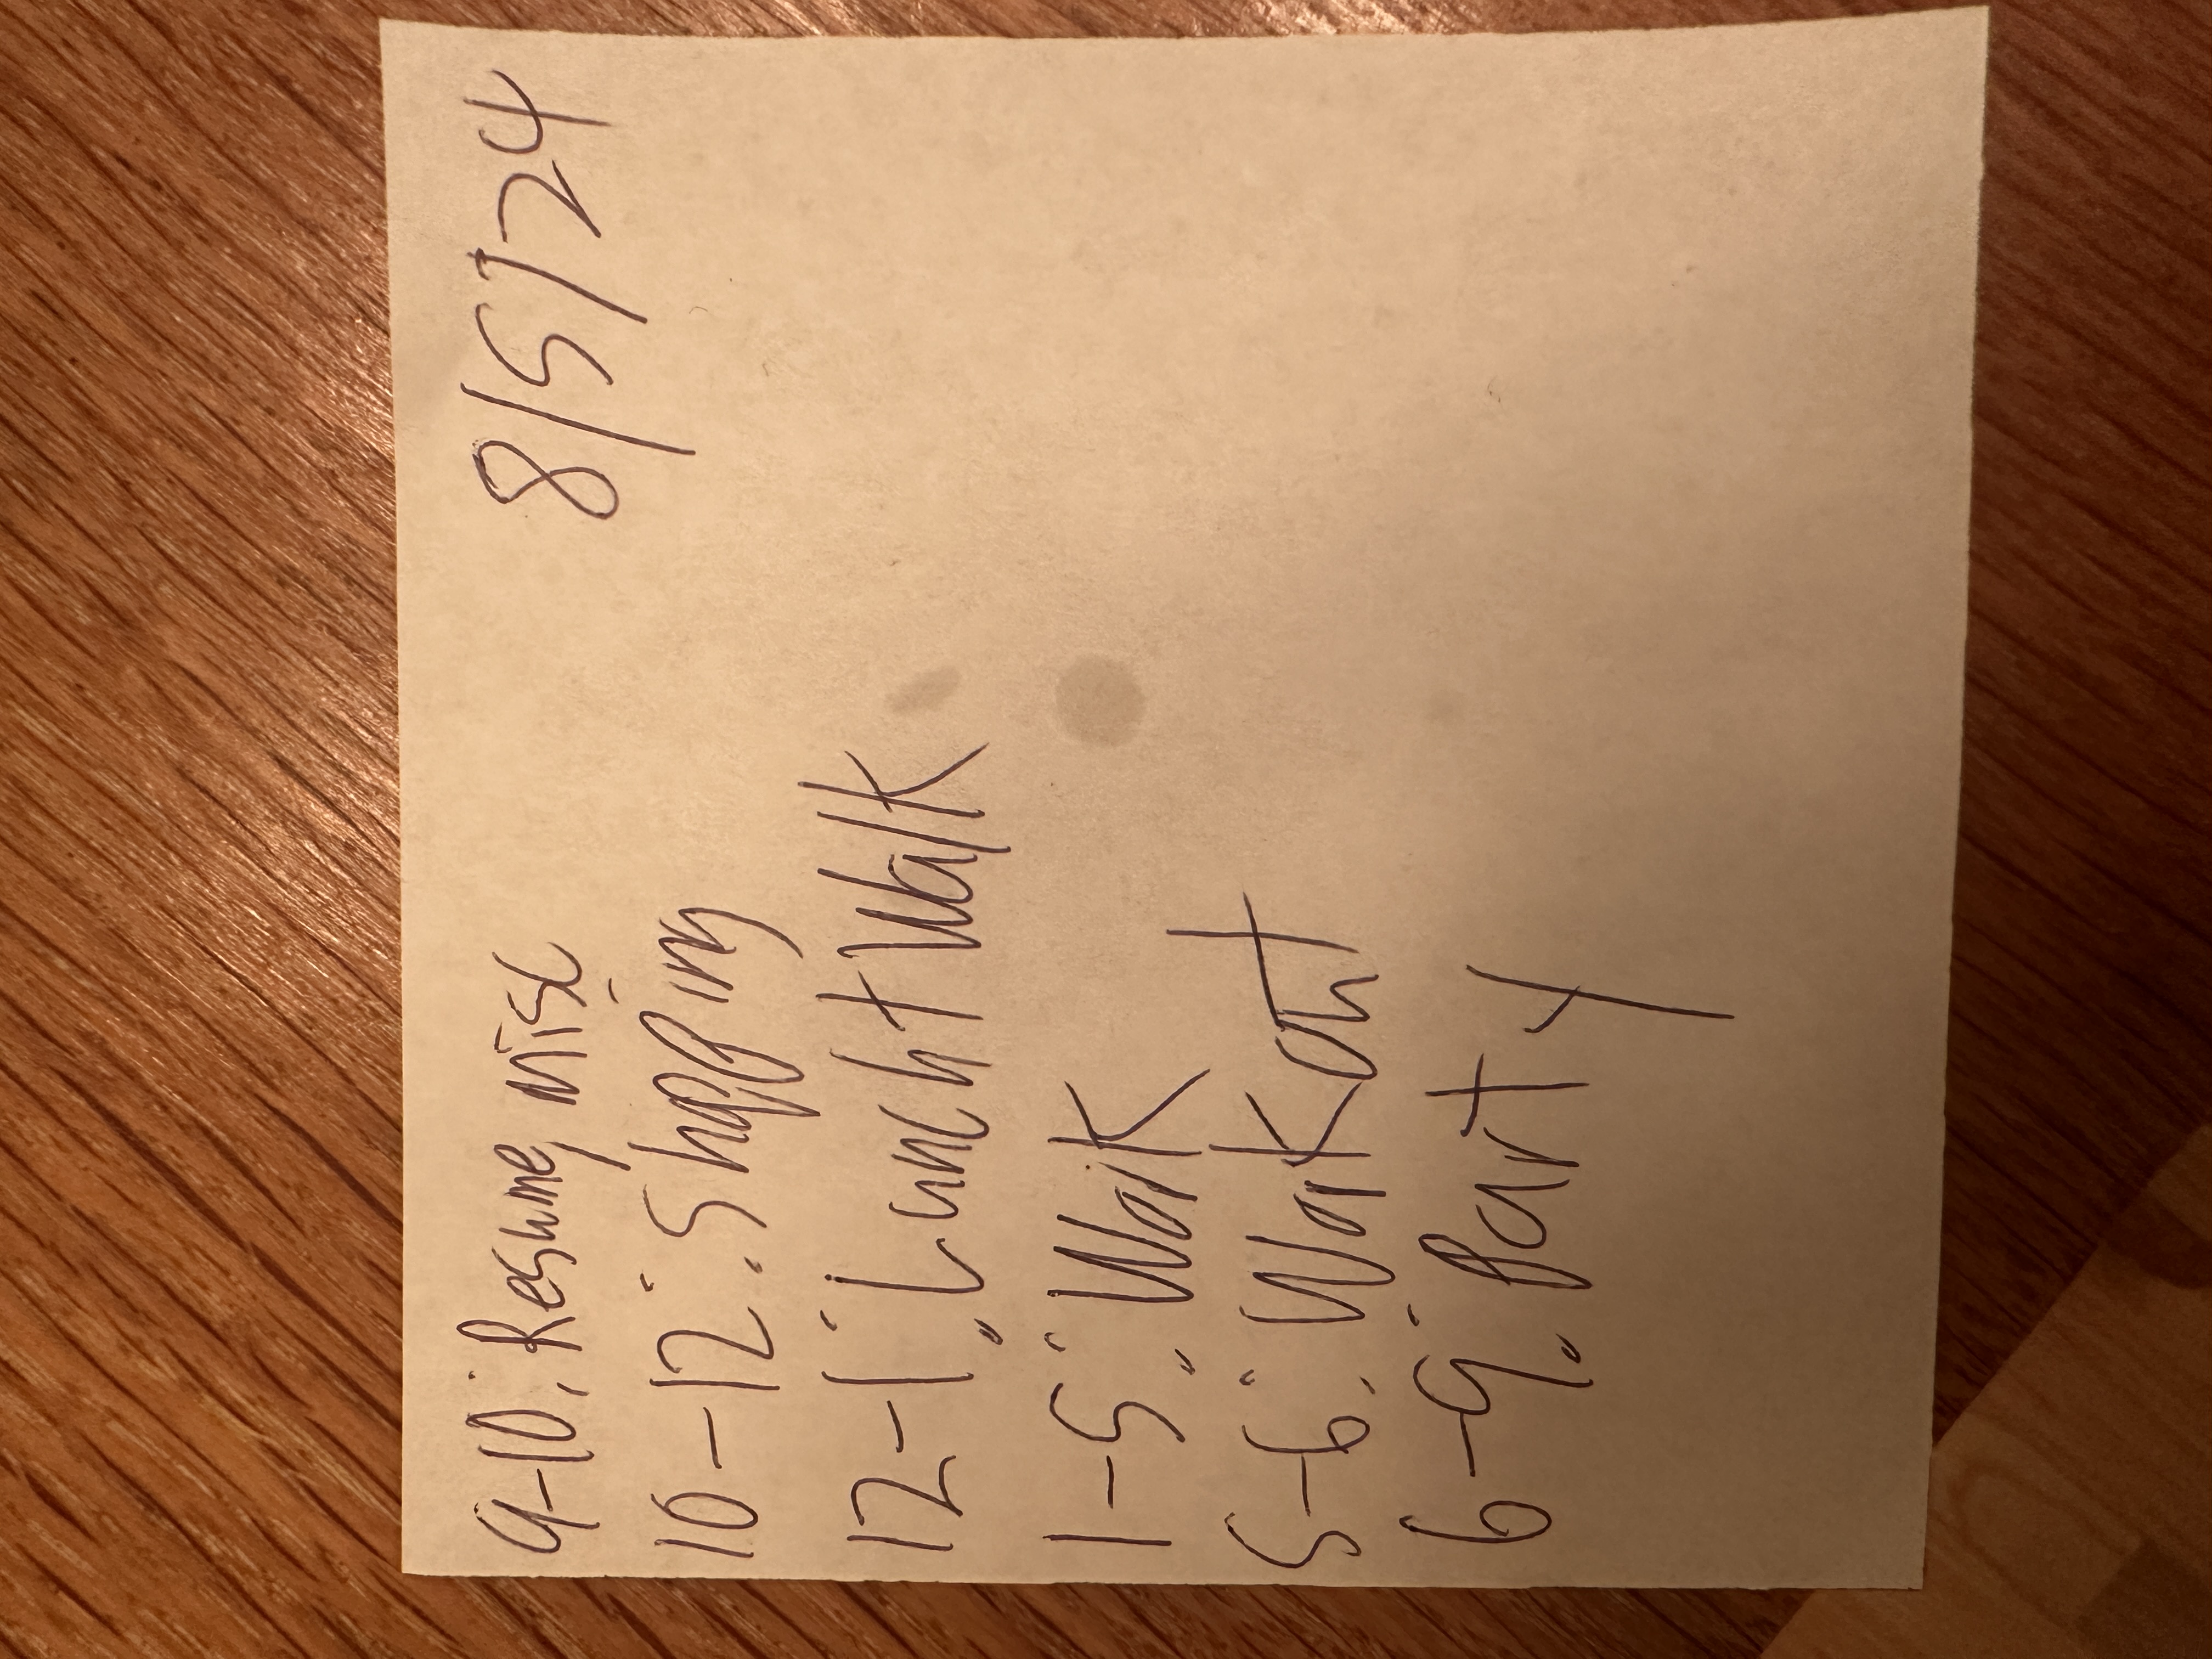 8/5/24
9-10: Resume, misc
10-12: Shopping
12-1: Lunch + Walk
1-5: Work
5-6: Workout
6-9: Party